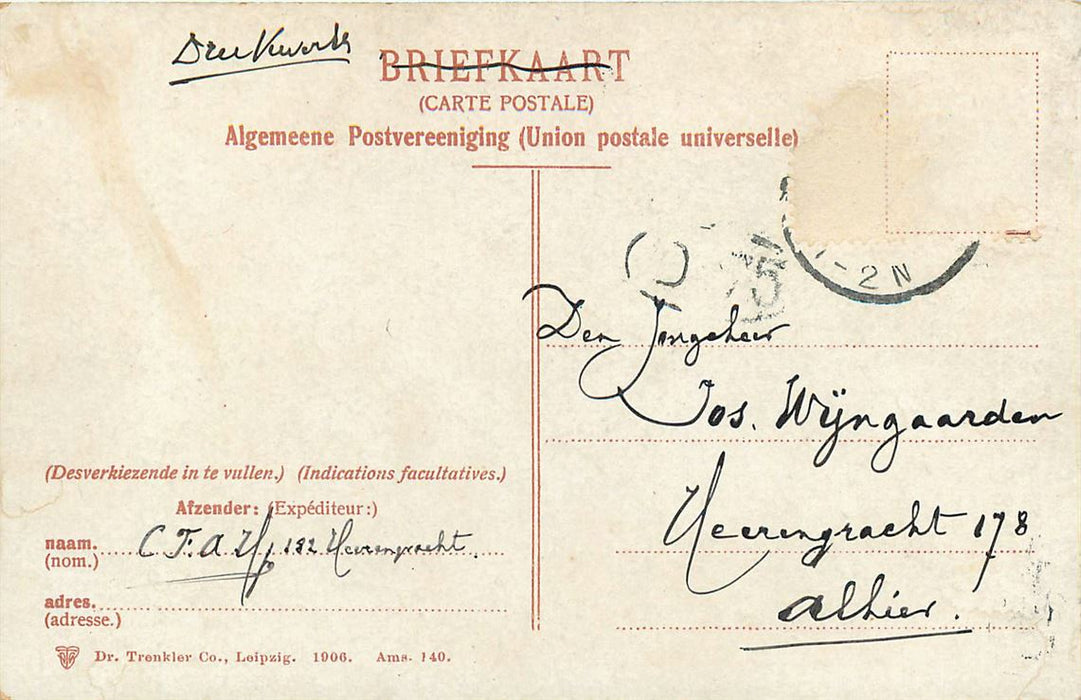 Drukwerk
BRIEFKAART
(CARTE POSTALE)
Algemeene Postvereeniging (Union postale universelle)
1-2N
Den Jongeheer
Jos. Wijngaarden
Heerengracht 178
Alhier.
(Desverkiezende in te vullen.) (Indications facultatives.)
Afzender: (Expéditeur:)
naam. C.F.A.H. 132 Heerengracht.
(nom.)
adres.
(adresse.)
Dr. Trenkler Co., Leipzig. 1906. Ams. 140.